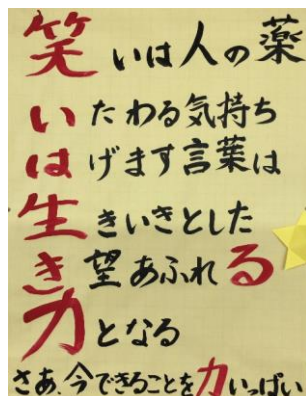 笑いは人の薬
いたわる気持ち
はげます言葉は
生きいきとした
き望あふれる
力となる
さあ、今できることを力いっぱい